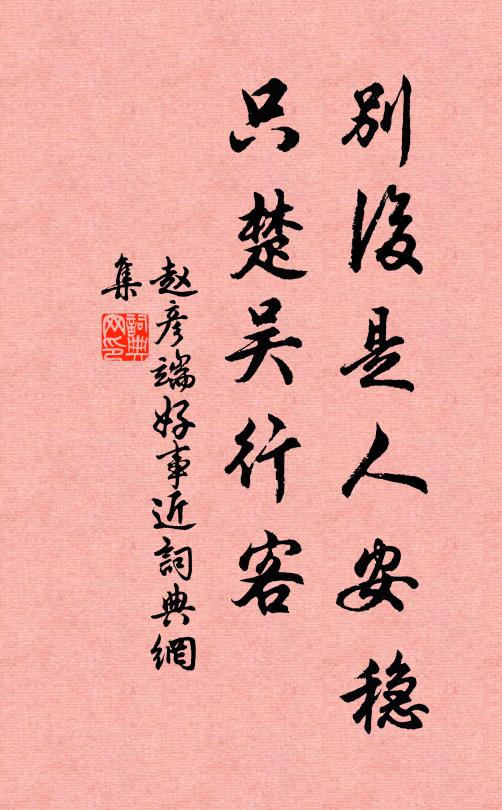 別後是人安穩
只楚吳行客
赵彦端好事近詞典網
集
詞典
网印